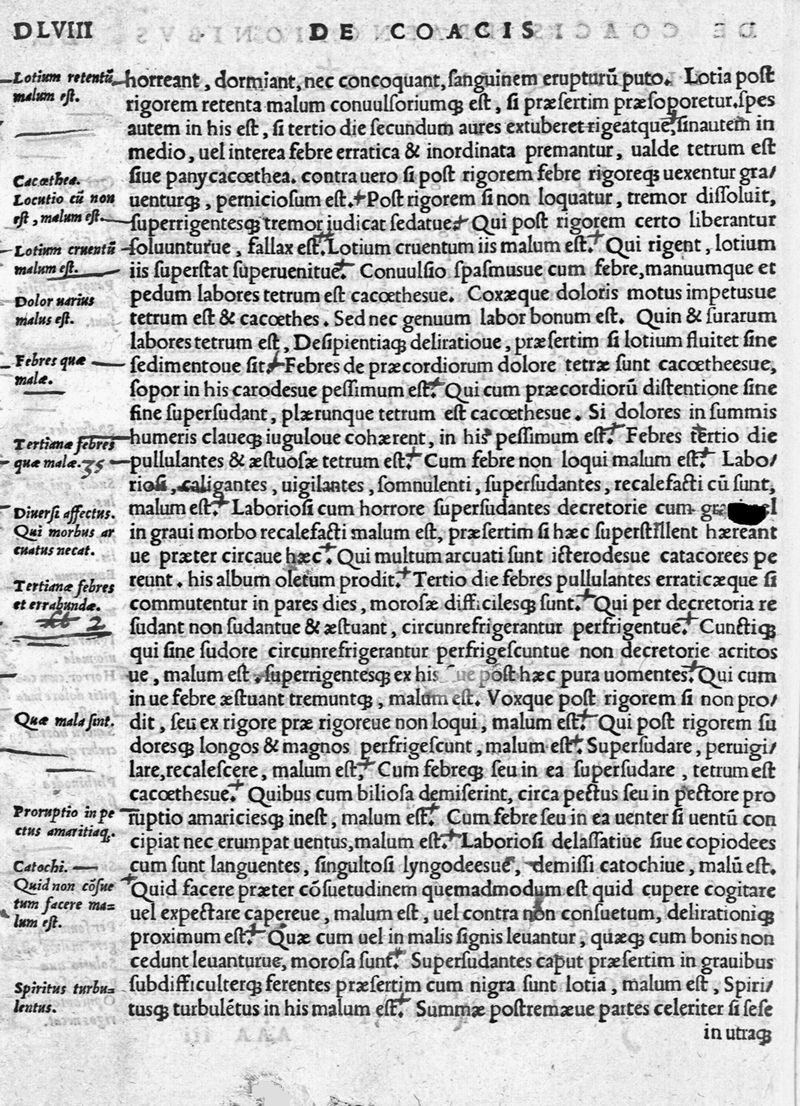 DLVIII DE COACIS
Lotium retentũ
malum est.
horreant, dormiant, nec concoquant, sanguinem erupturũ puto. Lotia post
rigorem retenta malum conuulsoriumq; est, si præsertim præsoporetur. spes
autem in his est, si tertio die secundum aures extuberet rigeatque, sinautem in
medio, uel interea febre erratica & inordinata premantur, ualde tetrum est
Cacœthea.
siue panycacœthea. contra uero si post rigorem febre rigoreq; uexentur gra/
Locutio cũ non
est, malum est.
uenturq;, perniciosum est. Post rigorem si non loquatur, tremor dissoluit,
superrigentesq; tremor judicat sedatue. Qui post rigorem certo liberantur
Lotium cruentũ
malum est.
soluunturue, fallax est. Lotium cruentum iis malum est. Qui rigent, lotium
iis superstat superuenitue. Conuulsio spasmusue cum febre, manuumque et
Dolor uarius
malus est.
pedum labores tetrum est cacœthesue. Coxæque doloris motus impetusue
tetrum est & cacœthes. Sed nec genuum labor bonum est. Quin & surarum
labores tetrum est, Desipientiaq; deliratioue, præsertim si lotium fluitet sine
Febres quæ
malæ.
sedimentoue sit. Febres de præcordiorum dolore tetræ sunt cacœtheesue,
sopor in his carodesue pessimum est. Qui cum præcordiorũ distentione sine
fine supersudant, plærunque tetrum est cacœthesue. Si dolores in summis
Tertianæ febres
quæ malæ. 35
humeris claueq; iuguloue cohærent, in his pessimum est. Febres tertio die
pullulantes & æstuosæ tetrum est. Cum febre non loqui malum est. Labo/
riosi, caligantes, uigilantes, somnulenti, supersudantes, recalefacti cũ sunt,
Diuersi affectus.
malum est. Laboriosi cum horrore supersudantes decretorie cum
Qui morbus ar
cuatus necat.
in graui morbo recalefacti malum est, præsertim si hæc superstillent hæreant
ue præter circaue hæc. Qui multum arcuati sunt icterodesue catacorees pe
Tertianæ febres
et errabundæ.
reunt. his album oletum prodit. Tertio die febres pullulantes erraticæque si
commutentur in pares dies, morosæ difficilesq; sunt. Qui per decretoria re
sudant non sudantue & æstuant, circunrefrigerantur perfrigentue. Cunctiq;
qui sine sudore circunrefrigerantur perfrigescuntue non decretorie acritos
ue, malum est, superrigentesq; ex his ue post hæc pura uomentes. Qui cum
in ue febre æstuant tremuntq;, malum est. Voxque post rigorem si non pro/
Quæ mala sint.
dit, seu ex rigore præ rigoreue non loqui, malum est. Qui post rigorem su
doresq; longos & magnos perfrigescunt, malum est. Supersudare, peruigi/
lare, recalescere, malum est. Cum febreq; seu in ea supersudare, tetrum est
cacœthesue. Quibus cum biliosa demiserint, circa pectus seu in pectore pro
Proruptio in pe
ctus amaritiaq;.
ruptio amariciesq; inest, malum est. Cum febre seu in ea uenter si uentũ con
cipiat nec erumpat uentus, malum est. Laboriosi delassatiue siue copiodees
Catochi.
cum sunt languentes, singultosi lyngodeesue, demissi catochiue, malũ est.
Quid non cõsue
tum facere ma=
lum est.
Quid facere præter cõsuetudinem quemadmodum est quid cupere cogitare
uel expectare capereue, malum est, uel contra non consuetum, delirationiq;
proximum est. Quæ cum uel in malis signis leuantur, quæq; cum bonis non
cedunt leuanturue, morosa sunt. Supersudantes caput præsertim in grauibus
Spiritus turbu=
lentus.
subdifficulterq; ferentes præsertim cum nigra sunt lotia, malum est, Spiri/
tusq; turbulẽtus in his malum est. Summæ postremæue partes celeriter si sese
in utraq;